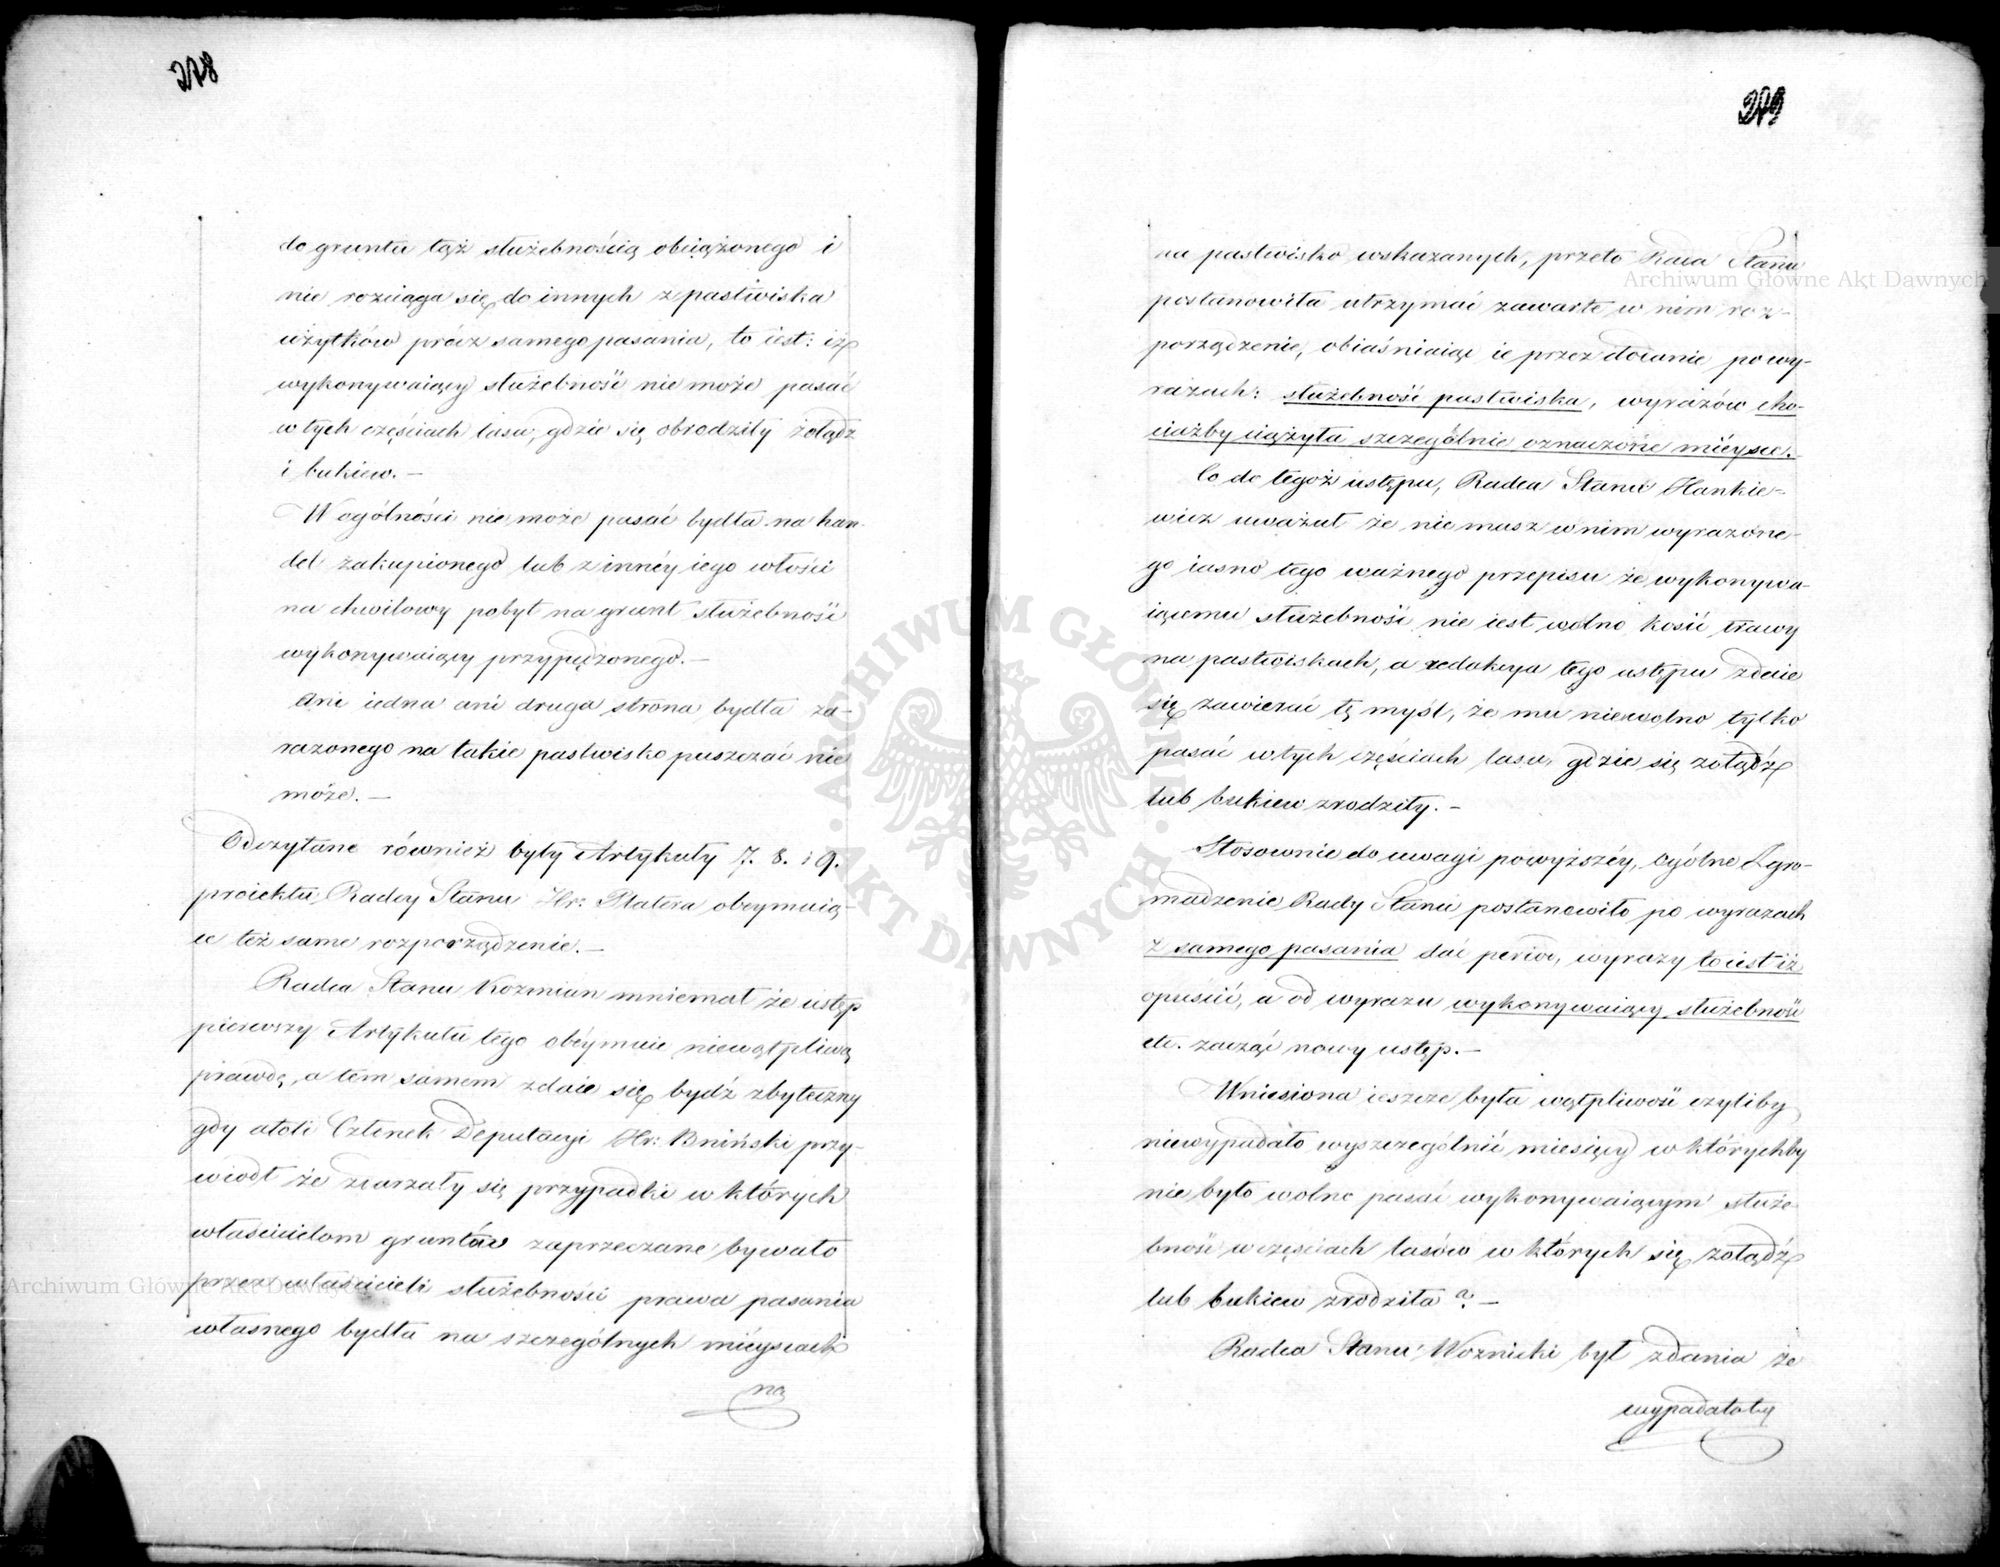 278
do gruntu tąż służebnością obciążonego i
nie rozciąga się do innych z pastwiska
użytków prócz samego pasania, to iest: iż
wykonywaiący służebność nie może pasać
w tych częściach lasu, gdzie się obrodziły żołądz
i bukiew. —
W ogólności nie może pasać bydła na han-
del zakupionego lub z innéy iego włości
na chwilowy pobyt na grunt służebność
wykonywaiący przypędzonego. —
Ani iedna ani druga strona bydła za-
rażonego na takie pastwisko puszczać nie
może. —
Odczytane również były Artykuły 7. 8. i 9.
proiektu Radcy Stanu Hr: Platera obeymuią-
ce też same rozporządzenie. —
Radca Stanu Kozmian mniemał że ustęp
pierwszy Artykułu tego obéymuie niewątpliwą
prawdę, a tem samem zdaie się bydź zbyteczny
gdy atoli Członek Deputacyi Hr: Bniński przy-
wiodł że zdarzały się przypadki w których
właścicielom gruntów zaprzeczane bywało
przez właścicieli służebności prawa pasania
własnego bydła na szczególnych miéyscach
na
279
na pastwisko wskazanych, przeto Rada Stanu
postanowiła utrzymać zawarte w nim roz-
porządzenie, obiaśniaiąc ie przez dodanie po wy-
razach: służebność pastwiska, wyrazów cho-
ciażby ciążyła szczególnie oznaczone miéysce.
Co do tegoż ustępu, Radca Stanu Hankie-
wicz uważał że nie masz w nim wyrażone-
go iasno tego ważnego przepisu że wykonywa-
iącemu służebność nie iest wolno kosić trawy
na pastwiskach, a redakcya tego ustępu zdaie
się zawierać tę myśl, że mu niewolno tylko
pasać w tych częściach lasu, gdzie się żołądź
lub bukiew zrodziły. —
Stosownie do uwagi powyższéy, Ogólne Zgro-
madzenie Rady Stanu postanowiło po wyrazach
z samego pasania dać period, wyrazy to iest iż
opuścić, a od wyrazu wykonywaiący służebność
etc. zacząć nowy ustęp. —
Wniesiona ieszcze była wątpliwość czyliby
niewypadało wyszczególnić miesięcy w którychby
nie było wolno pasać wykonywaiącym służe-
bność w częściach lasów w których się żołądź
lub bukiew zrodziła? —
Radca Stanu Woznicki był zdania że
wypadałoby
Archiwum Główne Akt Dawnych
Archiwum Główne Akt Dawnych
· ARCHIWUM GŁÓWNE · AKT DAWNYCH